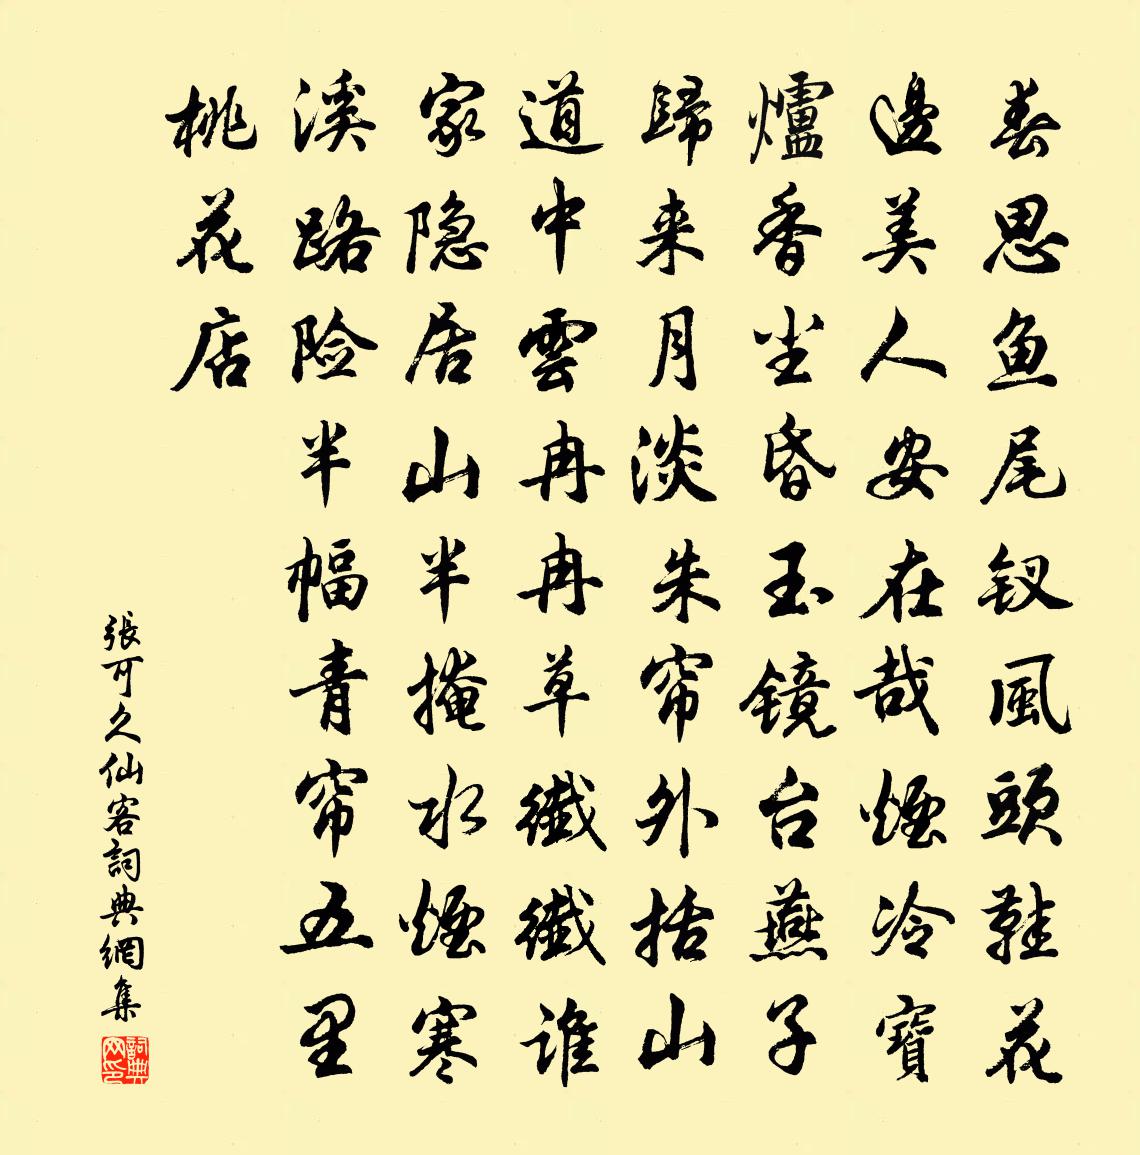 春思鱼尾钗風頭鞋花
邊美人安在哉煙冷寶
爐香尘昏玉镜台燕子
歸来月淡朱帘外括山
道中雲冉冉草纖纖谁
家隐居山半掩水煙寒
溪路险半幅青帘五里
桃花店
張可久仙客詞典網集
詞典网印